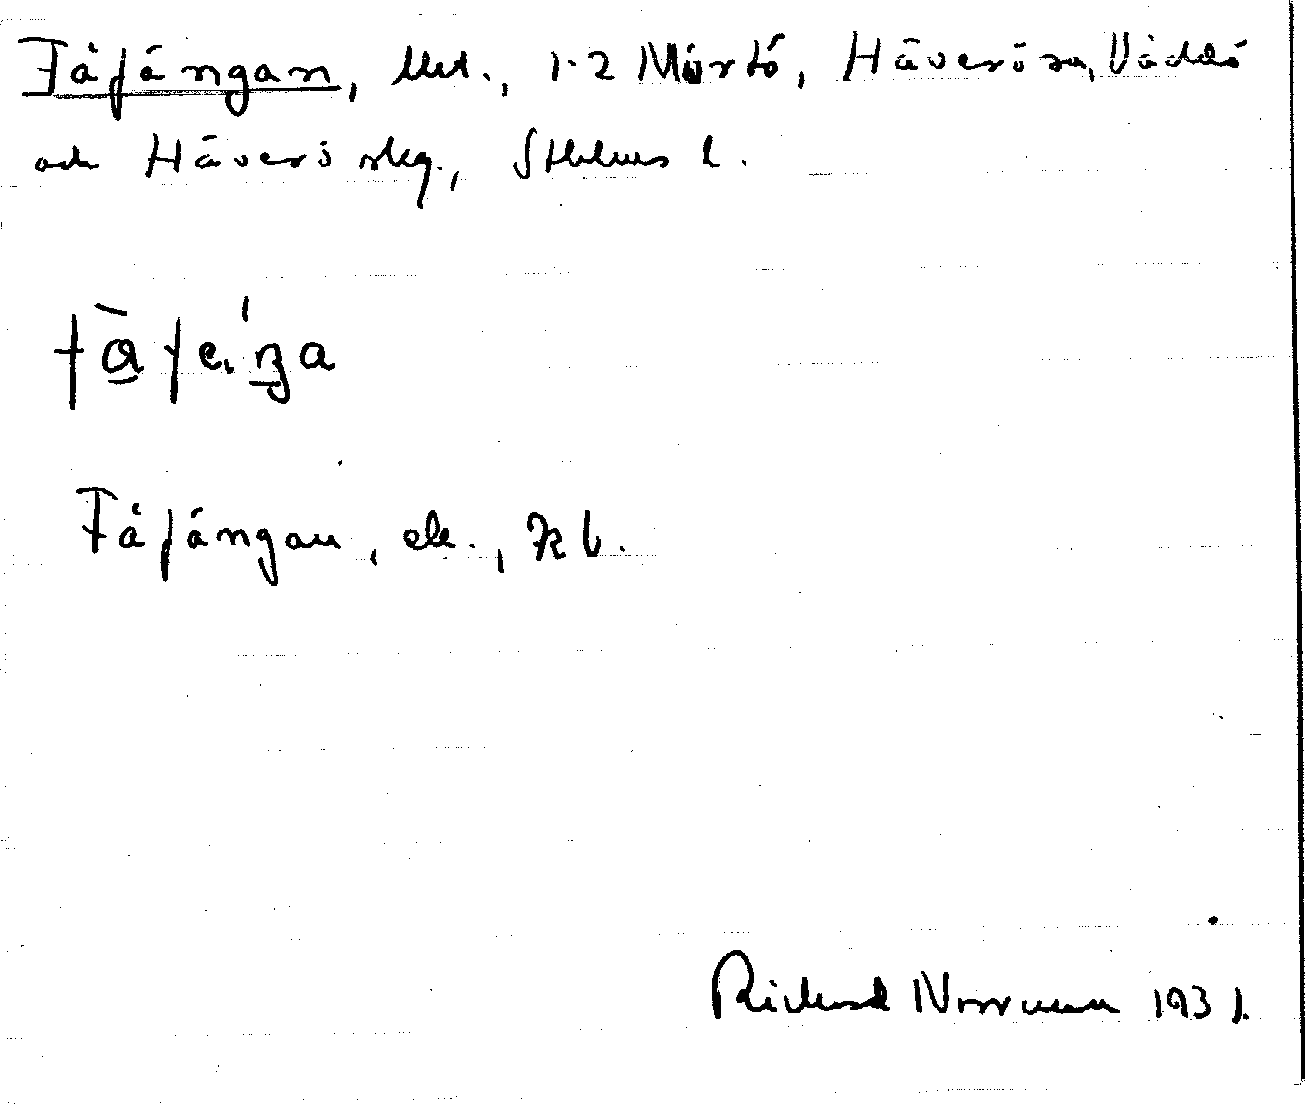 Fåfängan, lht., 1-2 Mörtö, Häverösa, Väddö
och Häverö skg., Sthlms l.
fàfeŋa
Fåfängan, ek., kb.
Richard Norrman 1931.